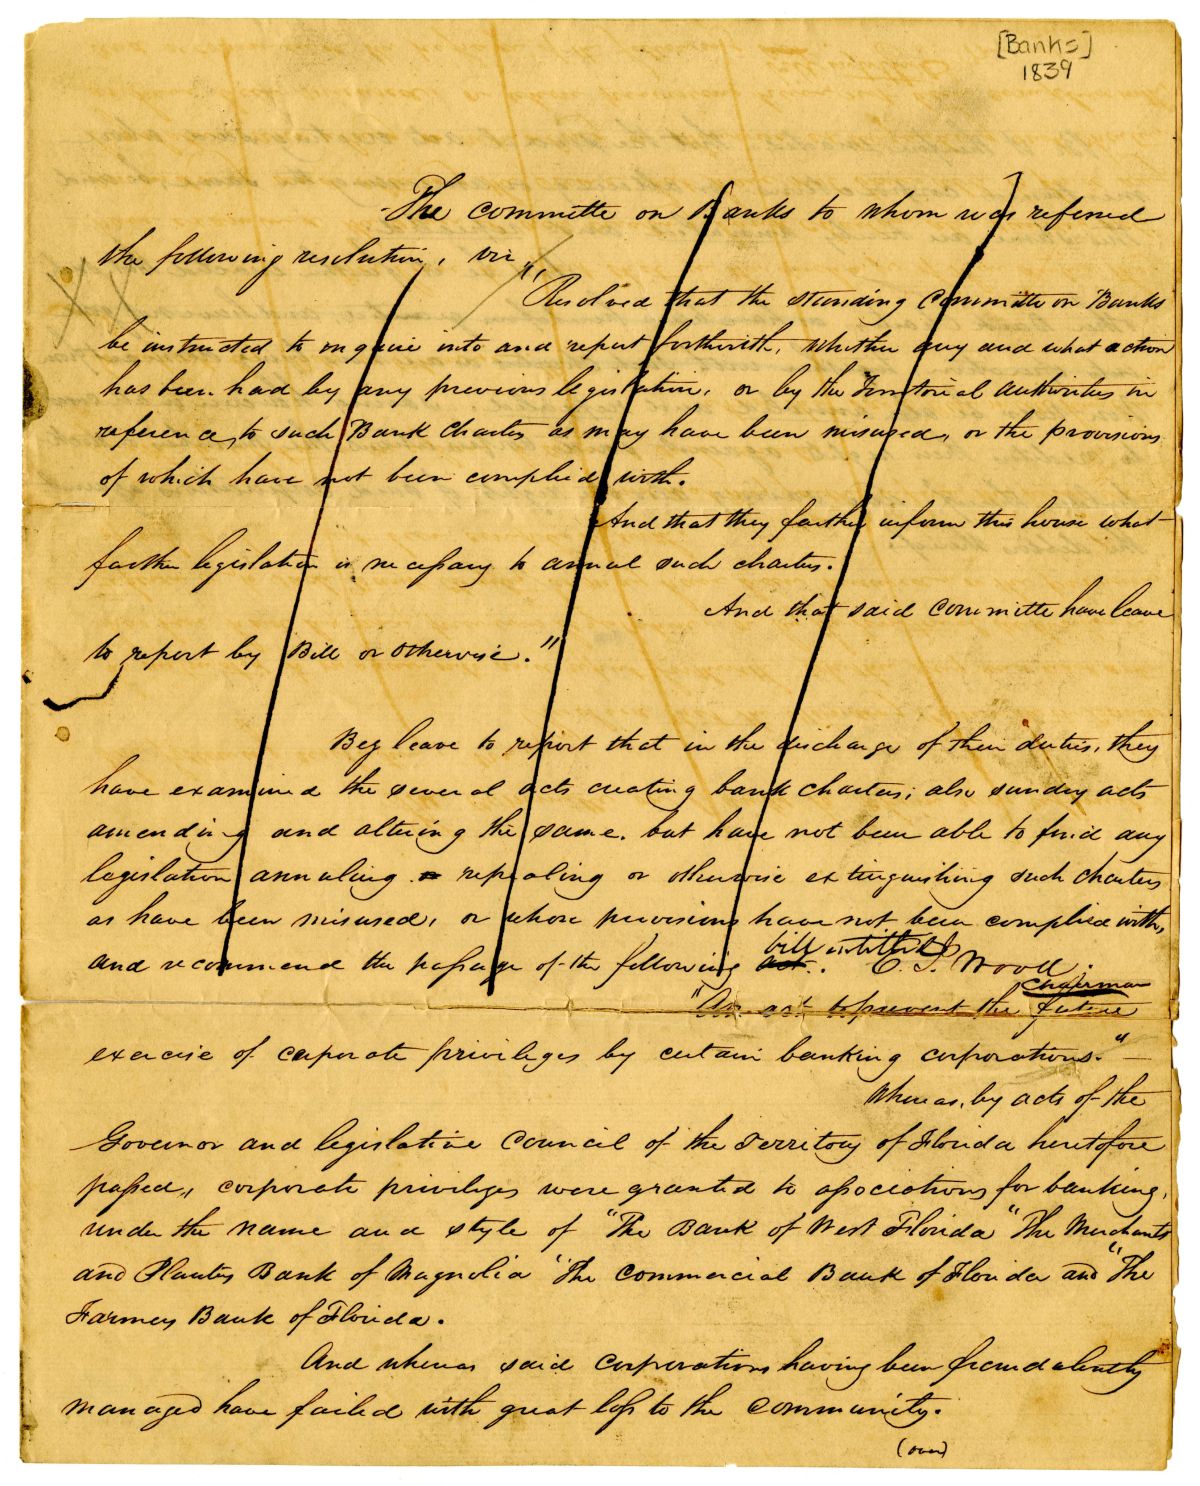 [Banks]
1839
The committe on Banks to whom was referred
the following resolution, viz
"Resolved that the standing Committe on Banks
be instructed to enquire into and report forthwith, whether any and what action
has been had by any previous legislation, or by the Territorial authorities in
reference, to such Bank charters as may have been misused, or the provisions
of which have not been complied with.
And that they further inform this house what
further legislation is necessary to annul such charters.
And that said committe have leave
to report by Bill or otherwise."
Beg leave to report that in the discharge of their duties, they
have examined the several acts creating bank charters; also sunday acts
amending and altering the same, but have not been able to find any
legislation annuling or repealing or otherwise extinguishing such charters
as have been misused, or whose provisions have not been complied with,
and recommend the passage of the following act. bill intitled C. S. Wood.
Chairman
"An act to prevent the future
exercise of corporate privileges by certain banking corporations."
Whereas, by acts of the
Governor and legislative council of the Territory of Florida heretofore
passed, corporate privileges were granted to associations for banking,
under the name and style of "The Bank of West Florida" The Merchants
and Planters Bank of Magnolia "The Commercial Bank of Florida and "The
Farmers Bank of Florida.
And whereas said corporations having been fraudulently
managed have failed with great loss to the community.
(over)